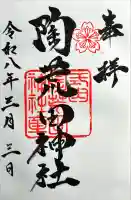 奉拝
陶荒田神社
令和八年三月三日